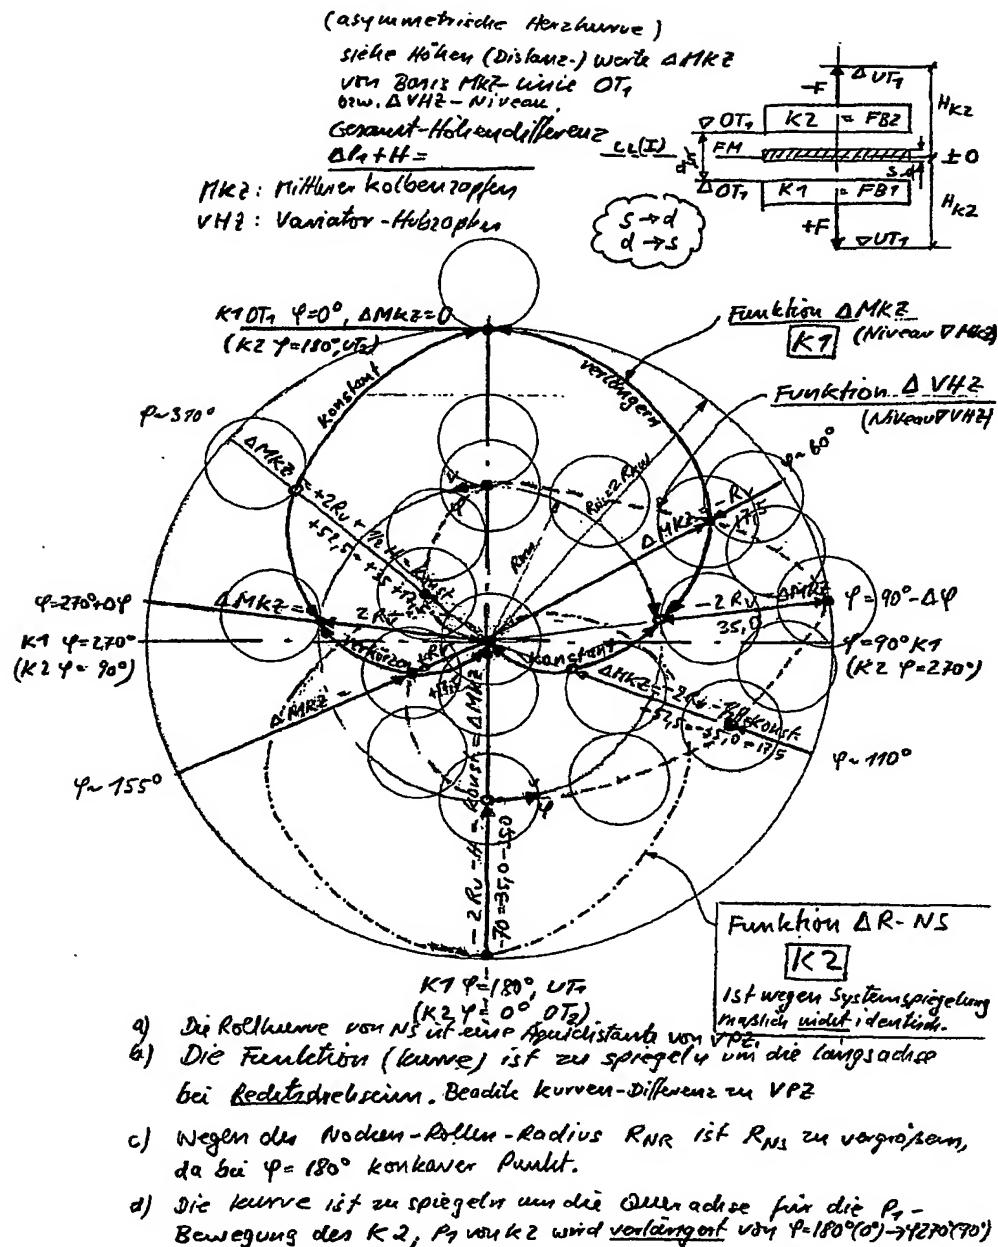 (asymmetrische Herzkurve)
siehe Höhen (Distanz-) werte ΔMKZ
von Basis MKZ-Linie OT₁
bzw. ΔVHZ-Niveau.
Gesamt-Höhendifferenz
ΔP₁+H =
MKZ: Mittlerer Kolbenzapfen
VHZ: Variator-Hubzapfen
ΔUT₁
-F
∇OT₁
K2 = FB2
H_KZ
FM
±0
ΔOT₁
K1 = FB1
H_KZ
+F
∇UT₁
s→d
d→s
K1 OT₁ φ=0°, ΔMKZ=0
(K2 φ=180°, UT₂)
Funktion ΔMKZ
K1 (Niveau ∇MKZ)
Funktion Δ VHZ
(Niveau∇VHZ)
konstant
verlängern
φ~310°
φ~60°
ΔMKZ
ΔMKZ = -Rv
17,5
φ=270°+Δφ
ΔMKZ =
2 Rv
-2 Rv = ΔMKZ
35,0
φ=90°-Δφ
K1 φ=270°
(K2 φ=90°)
φ=90° K1
(K2 φ=270°)
verkürzen
konstant
ΔMKZ
φ~155°
φ~110°
-2 Rv -H = konst = ΔMKZ
-70=-35,0-35,0
φ
Funktion ΔR-NS
K2
Ist wegen Systemspiegelung
maßlich nicht identisch.
K1 φ=180°, UT₁
(K2 φ=0° OT₂)
a) Die Rollkurve von NS ist eine Äquidistante von VPZ.
b) Die Funktion (Kurve) ist zu spiegeln um die Längsachse
bei Rechtsdrehsinn. Beachte Kurven-Differenz zu VPZ
c) Wegen des Nocken-Rollen-Radius R_NR ist R_NS zu vergrößern,
da bei φ=180° konkaver Punkt.
d) Die Kurve ist zu spiegeln um die Querachse für die P₁-
Bewegung des K2, P₁ von K2 wird verlängert von φ=180°(0°)→φ270°(90°)